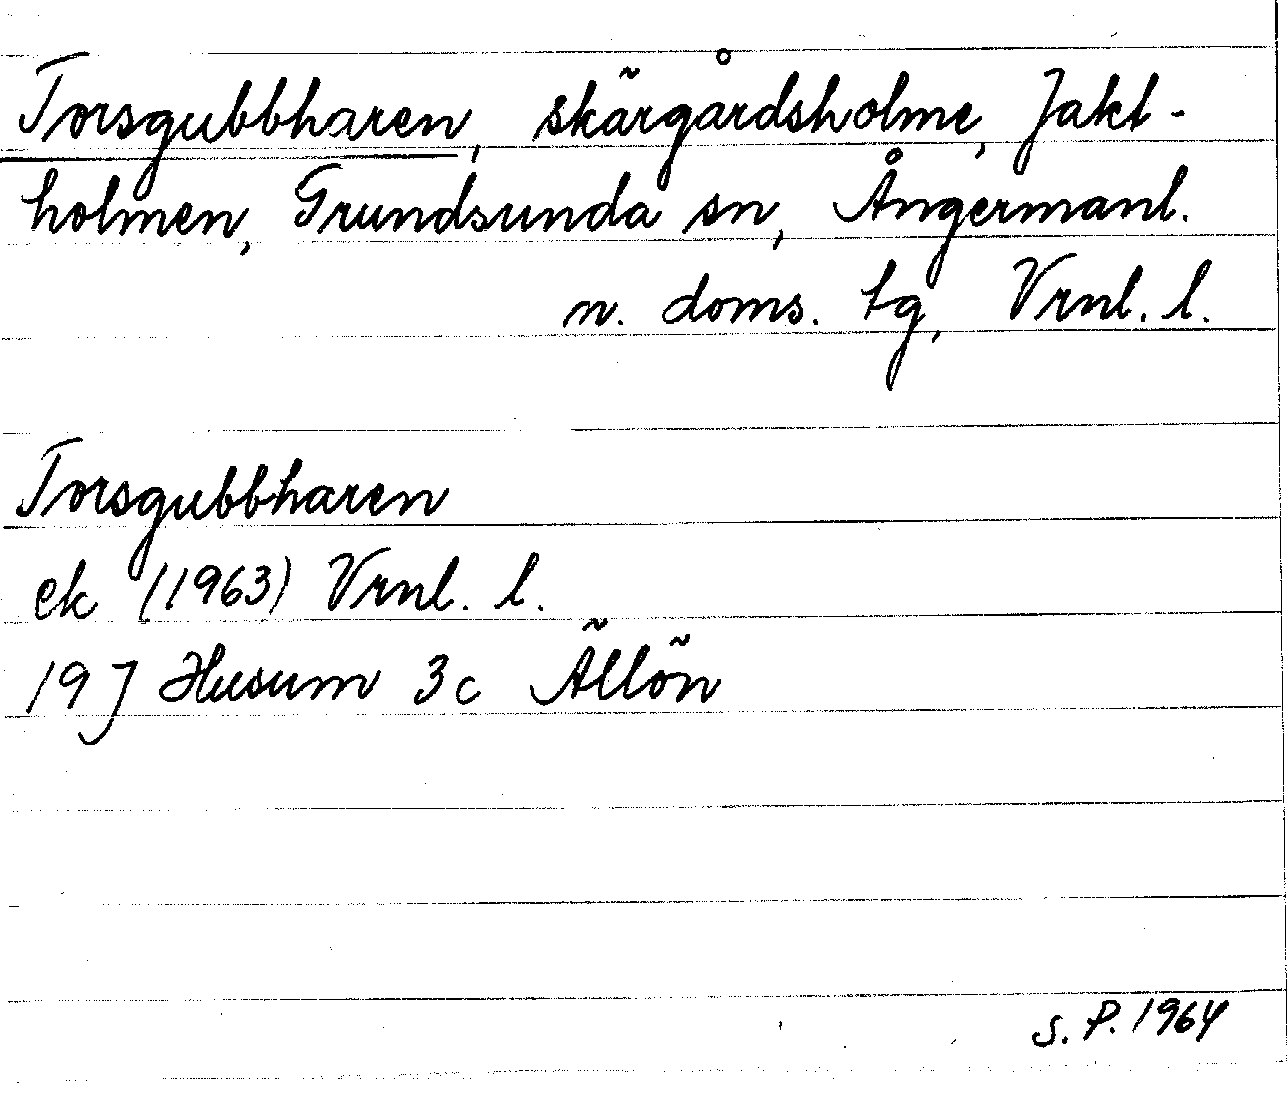 Torsgubbharen, skärgårdsholme, Jakt-
holmen, Grundsunda sn, Ångermanl.
n. doms. tg, Vrnl. l.
Torsgubbharen
ek (1963) Vrnl. l.
19J Husum 3c Ällön
S. P. 1964